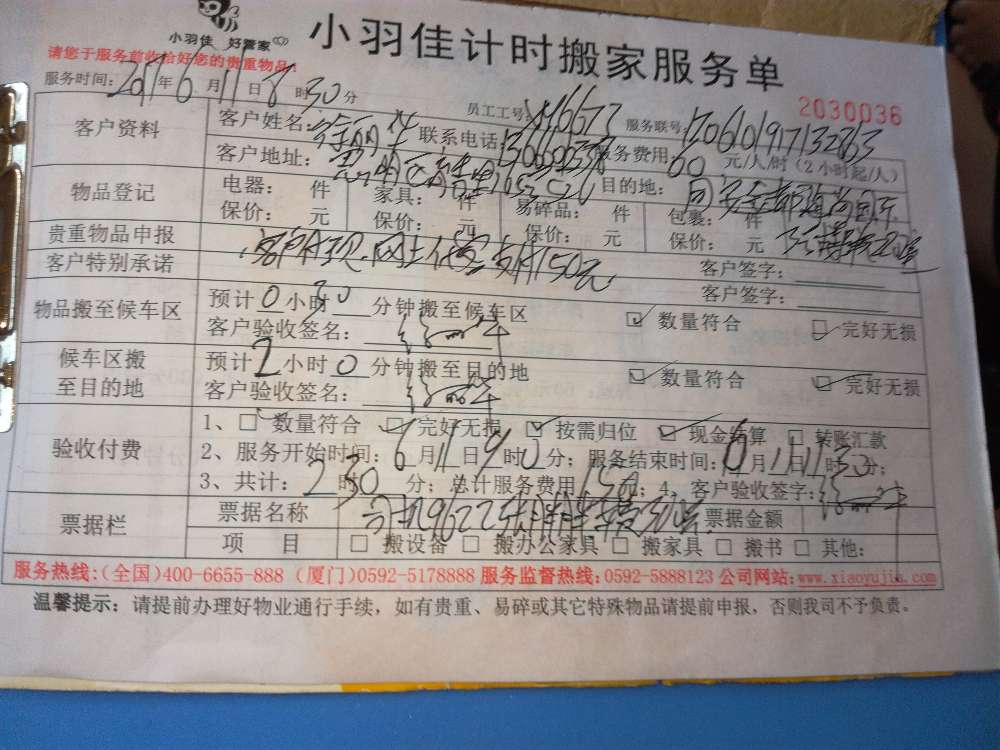 小羽佳 好管家
小羽佳计时搬家服务单
请您于服务前收拾好您的贵重物品!
2030036
服务时间: 2017年6月11日8时30分 员工工号: 服务联号:
客户资料
客户姓名: 联系电话: 服务费用: 60 元/人/时(2小时起/人)
客户地址: 目的地:
物品登记
电器: 件 家具: 件 易碎品: 件 包裹: 件
保价: 元 保价: 元 保价: 元 保价: 元
贵重物品申报 客户签字:
客户特别承诺 客户签字:
物品搬至候车区
预计0小时30分钟搬至候车区 数量符合 完好无损
客户验收签名:
候车区搬至目的地
预计2小时0分钟搬至目的地 数量符合 完好无损
客户验收签名:
验收付费
1、 数量符合 完好无损 按需归位 现金结算 转账汇款
2、服务开始时间: 6月11日9时0分; 服务结束时间: 月11日11时30分;
3、共计: 2时30分; 总计服务费用150; 4、客户验收签字:
票据栏
票据名称 票据金额
项 目 搬设备 搬办公家具 搬家具 搬书 其他:
服务热线:(全国)400-6655-888 (厦门)0592-5178888 服务监督热线:0592-5888123 公司网站:www.xiaoyujia.com
温馨提示: 请提前办理好物业通行手续,如有贵重、易碎或其它特殊物品请提前申报,否则我司不予负责。